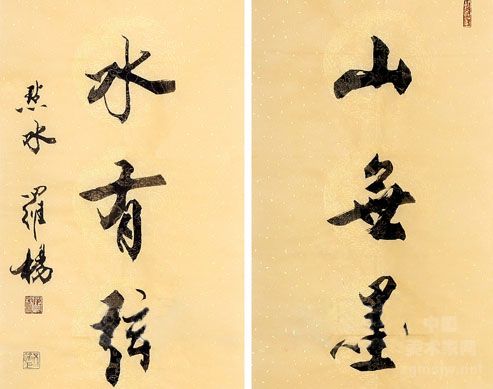 山無墨
水有弦
水 羅楊
中国
美术家网